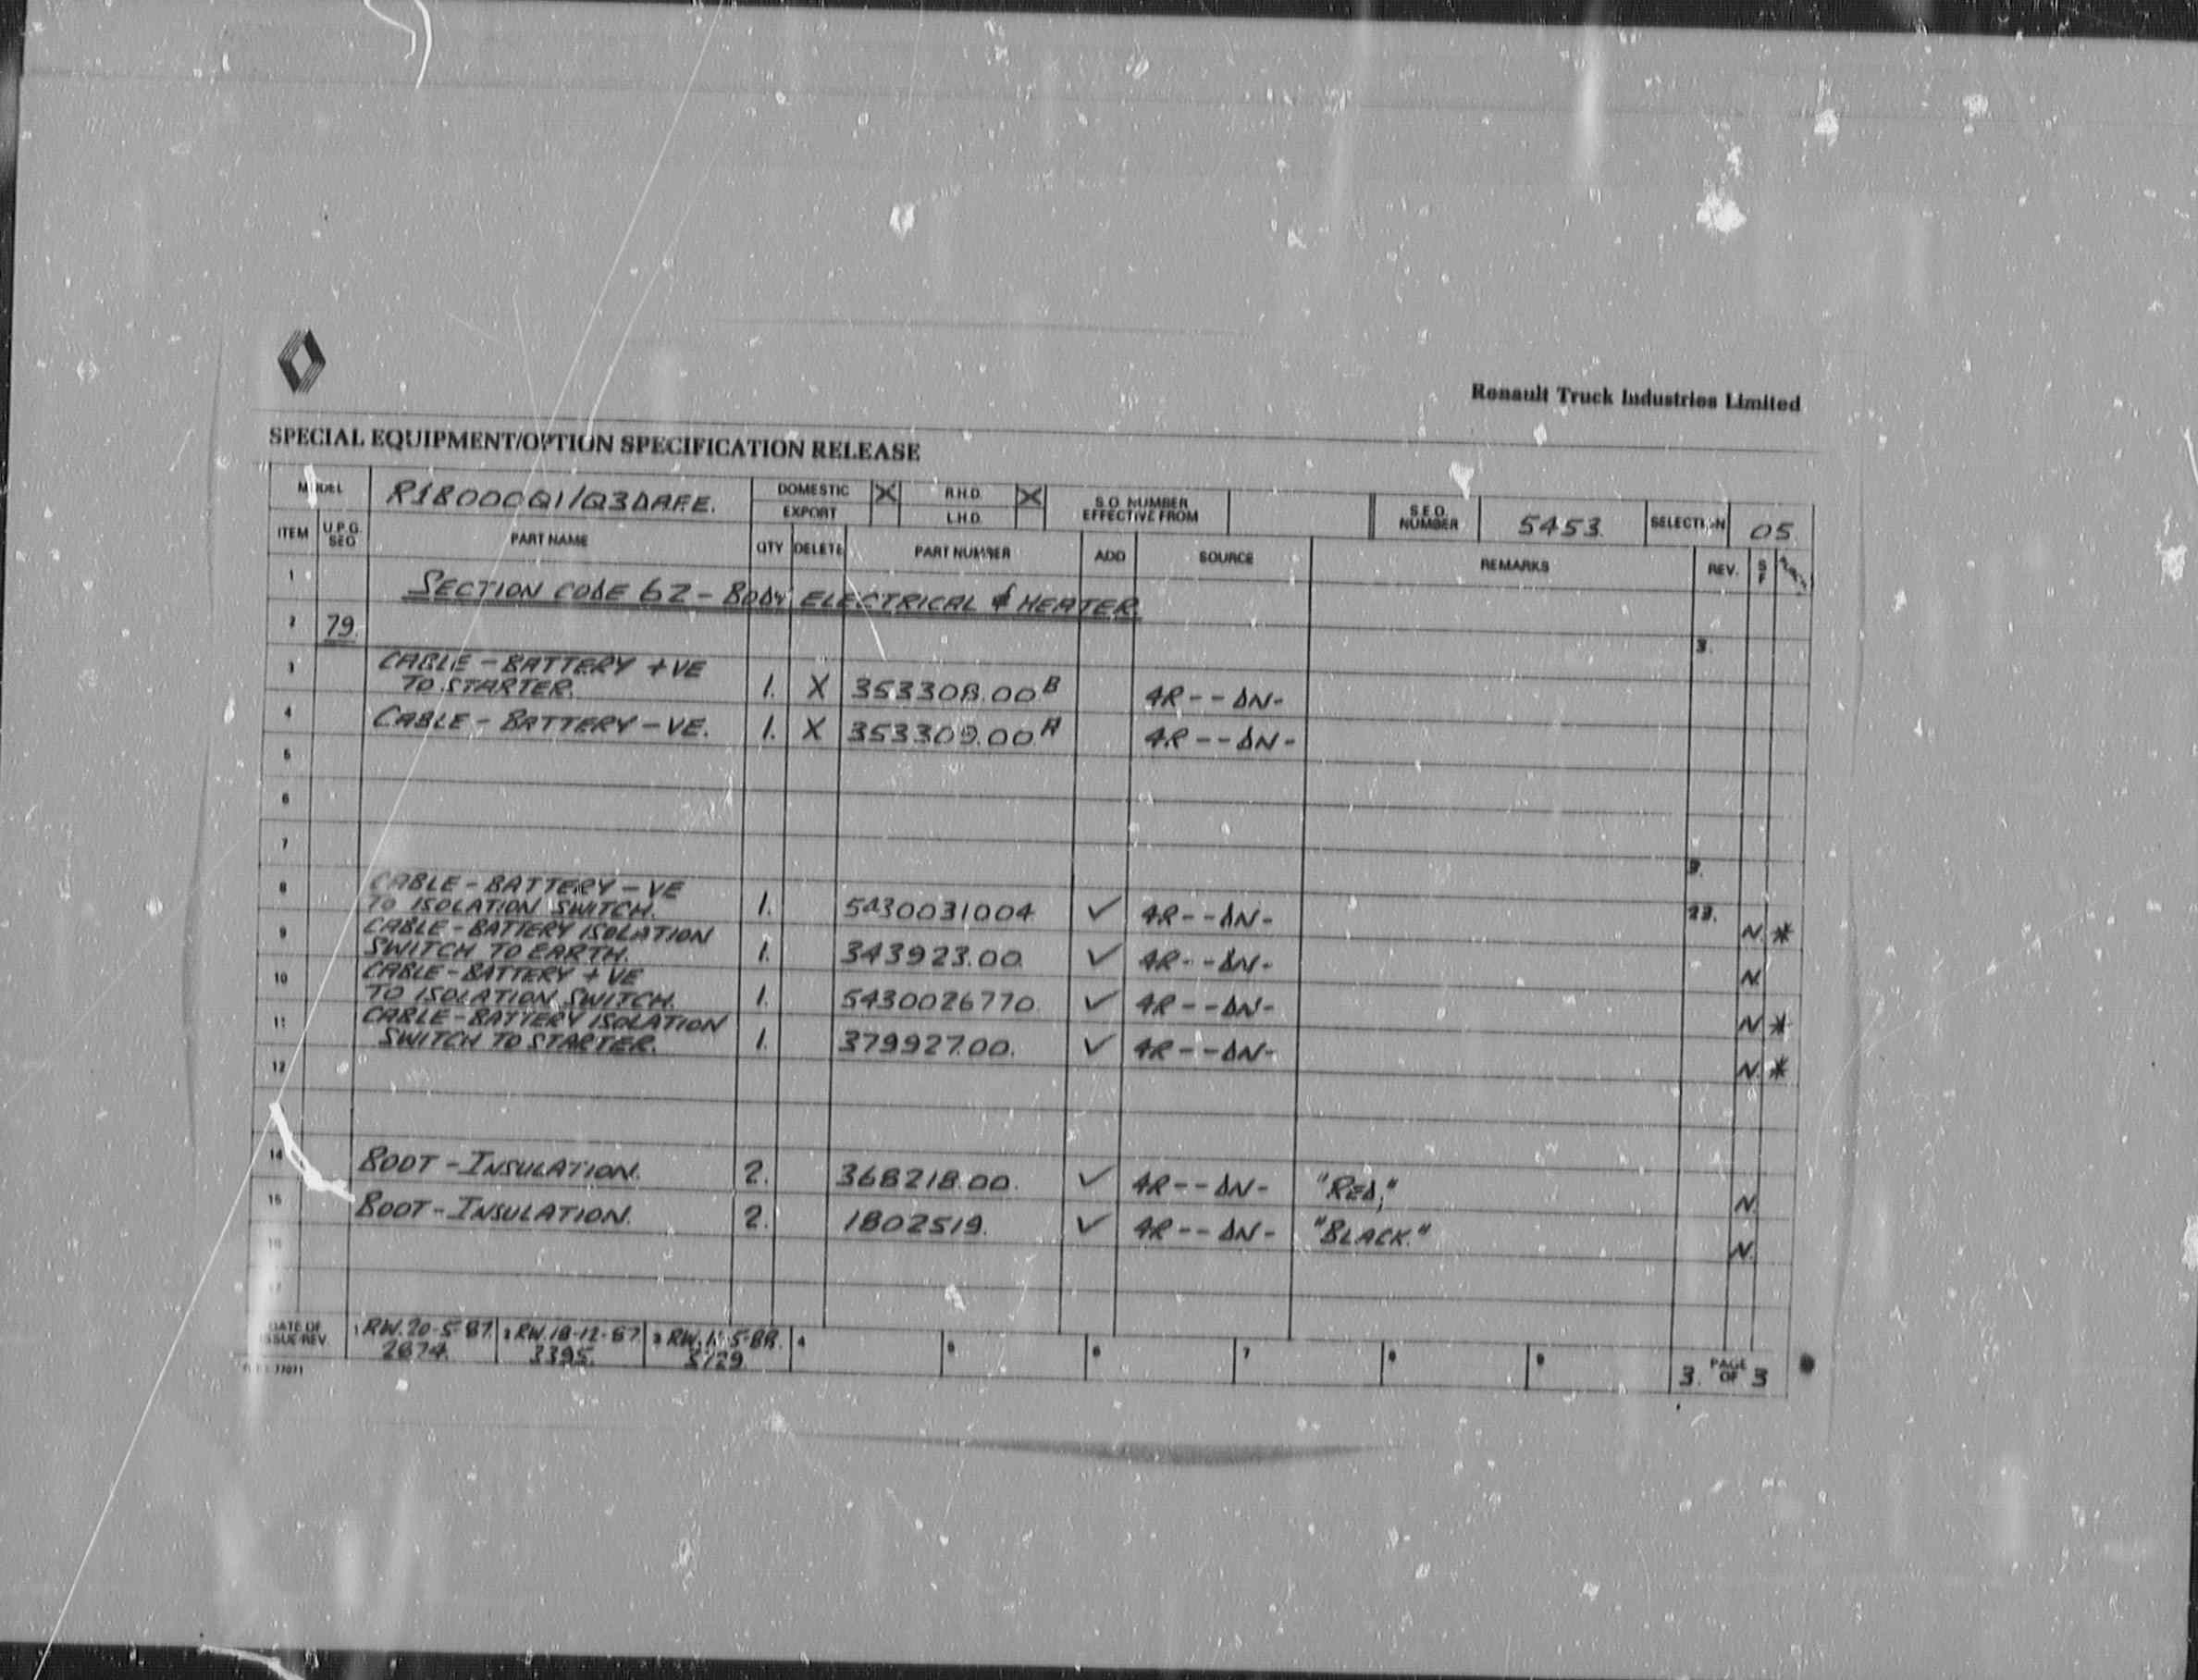 Renault Truck Industries Limited
SPECIAL EQUIPMENT/OPTION SPECIFICATION RELEASE
MODEL R1800CQ1/Q3DAF.E. DOMESTIC X R.H.D. X S.O. NUMBER EFFECTIVE FROM S.E.O. NUMBER 5453. SELECTION 05.
EXPORT L.H.D.
ITEM U.P.G. SEQ PART NAME QTY DELETE PART NUMBER ADD SOURCE REMARKS REV. S F
1 SECTION CODE 62 - BODY ELECTRICAL & HEATER.
2 79. 3.
3 CABLE - BATTERY +VE
TO STARTER. 1. X 353308.00 B 4R - - DN -
4 CABLE - BATTERY - VE. 1. X 353309.00 A 4R - - DN -
5
6
7
8 CABLE - BATTERY - VE
TO ISOLATION SWITCH. 1. 5430031004 ✓ 4R - - DN - N. *
9 CABLE - BATTERY ISOLATION
SWITCH TO EARTH. 1. 343923.00. ✓ 4R - - DN - N.
10 CABLE - BATTERY + VE
TO ISOLATION SWITCH. 1. 5430026770. ✓ 4R - - DN - N *
11 CABLE - BATTERY ISOLATION
SWITCH TO STARTER. 1. 379927.00. ✓ 4R - - DN - N. *
12
14 BOOT - INSULATION. 2. 368218.00. ✓ 4R - - DN - "RED," N.
15 BOOT - INSULATION. 2. 1802519. ✓ 4R - - DN - "BLACK." N.
16
DATE OF ISSUE/REV. 1 RW. 20-5-87. 2 RW. 18-12-87 3 4 5 6 7 8 9
2874. 3395. 3. PAGE OF 3